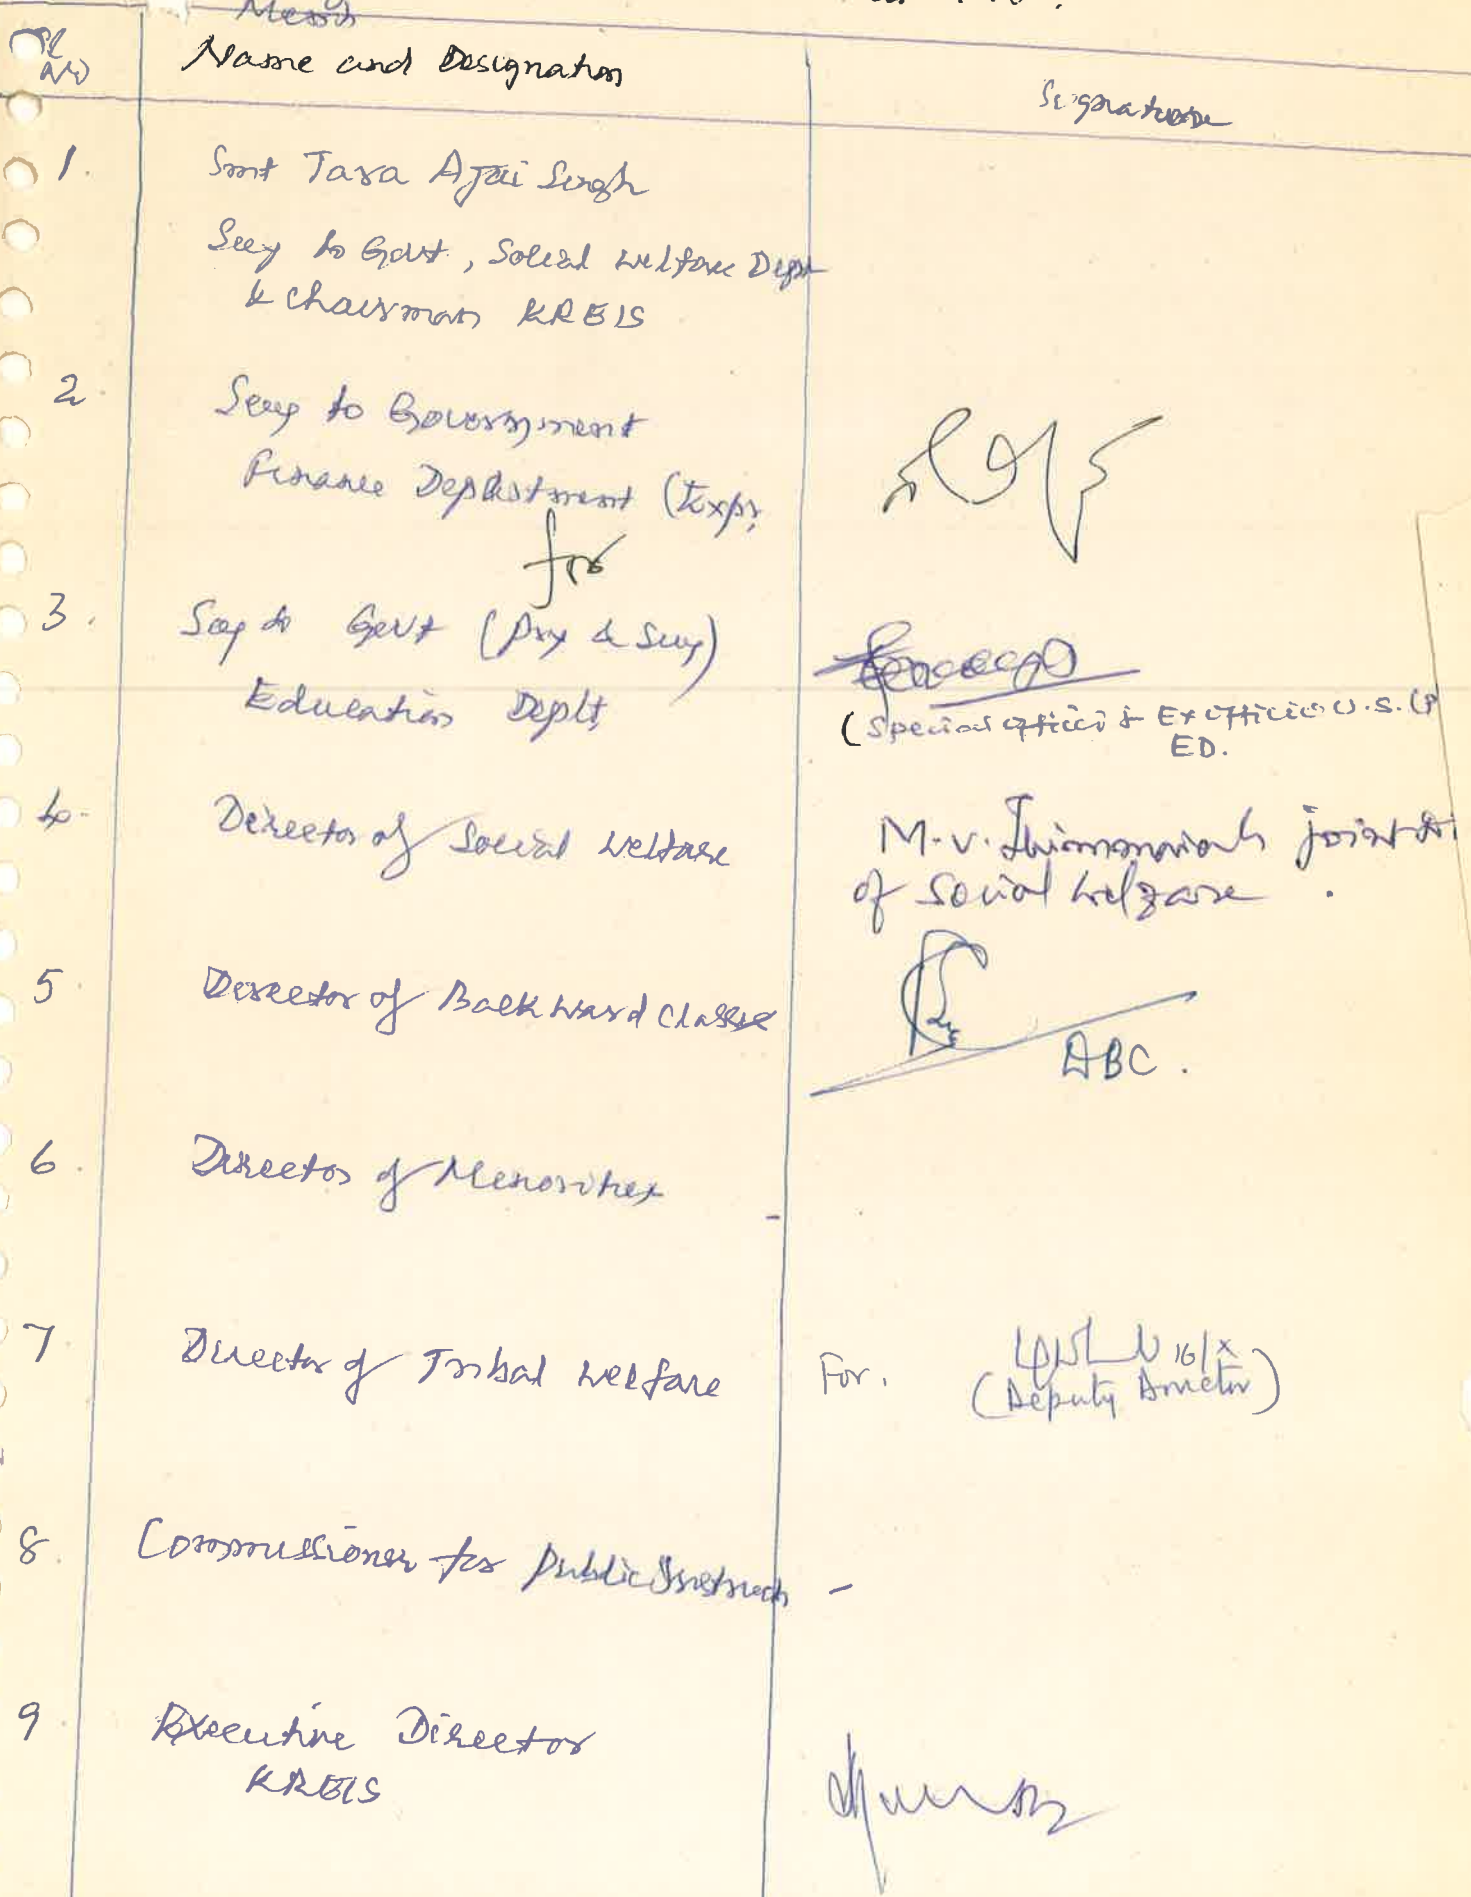 Sl No
Name and Designation
Signature
1. Smt Tara Ajai Singh
Secy to Govt, Social welfare Dept
& Chairman KREIS
2. Secy to Government
Finance Department (Exp)
for
3. Secy to Govt (Pry & Secy)
Education Deptt,
(Special Officer & Ex Officio U.S. (P
ED.
4. Director of Social Welfare
M.V. Thimmaiah joint Di
of Social Welfare.
5. Director of Backward Classe
DBC.
6. Director of Minorities
-
7. Director of Tribal Welfare
For.
16/X
(Deputy Director)
8. Commissioner for Public Instruch -
9. Executive Director
KREIS